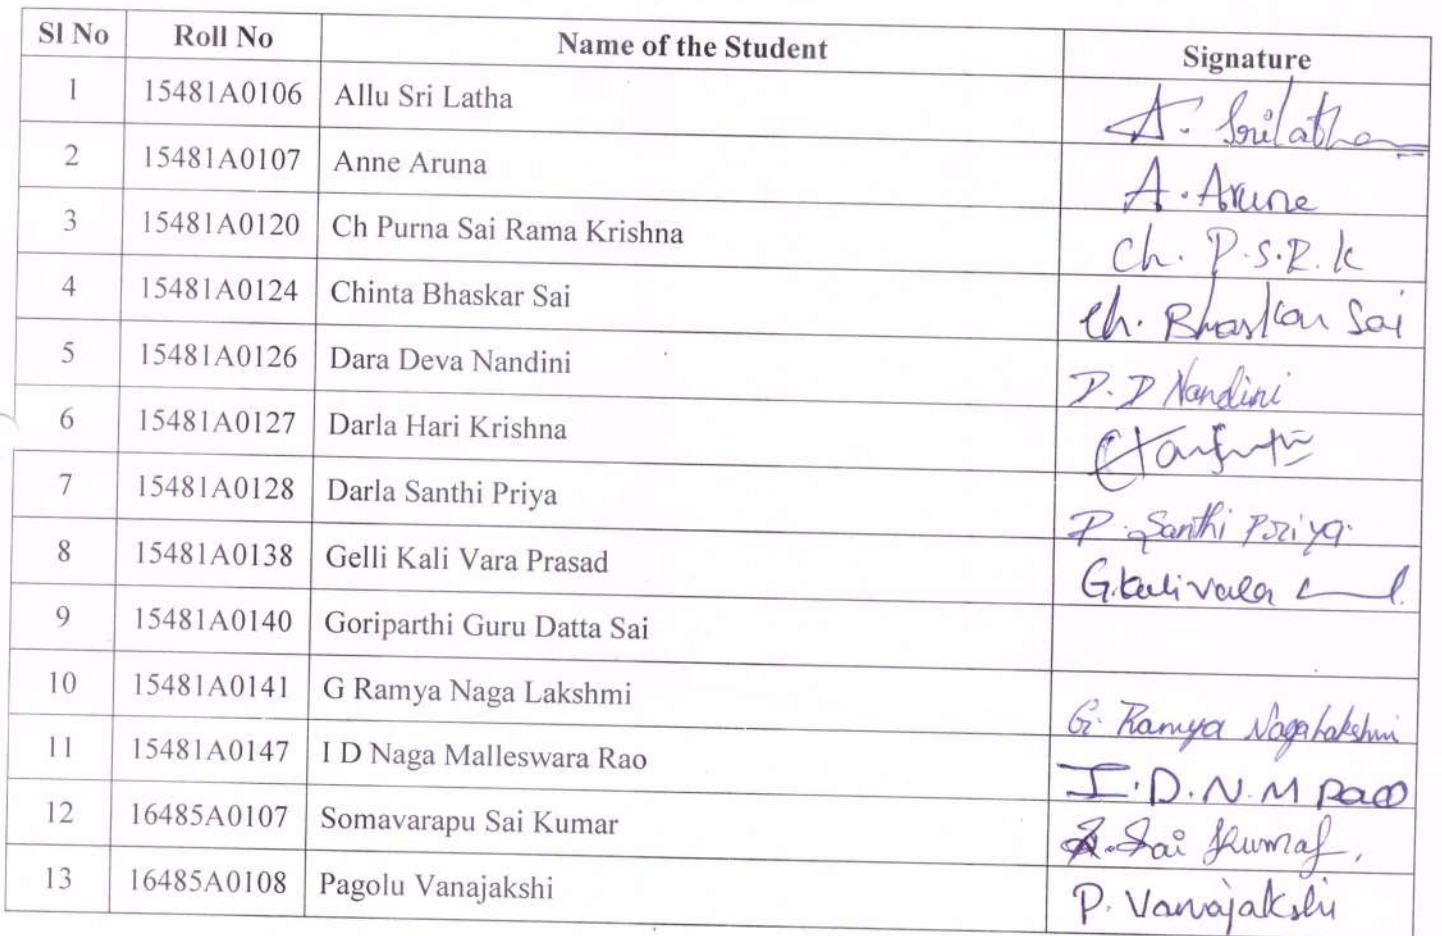 Sl No Roll No Name of the Student Signature
1 15481A0106 Allu Sri Latha A. Srilatha
2 15481A0107 Anne Aruna A. Aruna
3 15481A0120 Ch Purna Sai Rama Krishna Ch. P.S.R.K
4 15481A0124 Chinta Bhaskar Sai Ch. Bhaskar Sai
5 15481A0126 Dara Deva Nandini D. D Nandini
6 15481A0127 Darla Hari Krishna
7 15481A0128 Darla Santhi Priya D. Santhi Priya.
8 15481A0138 Gelli Kali Vara Prasad G.Kali
9 15481A0140 Goriparthi Guru Datta Sai
10 15481A0141 G Ramya Naga Lakshmi G. Ramya NagaLakshmi
11 15481A0147 I D Naga Malleswara Rao I.D.N.M Rao
12 16485A0107 Somavarapu Sai Kumar S. Sai Kumar,
13 16485A0108 Pagolu Vanajakshi P. Vanajakshi